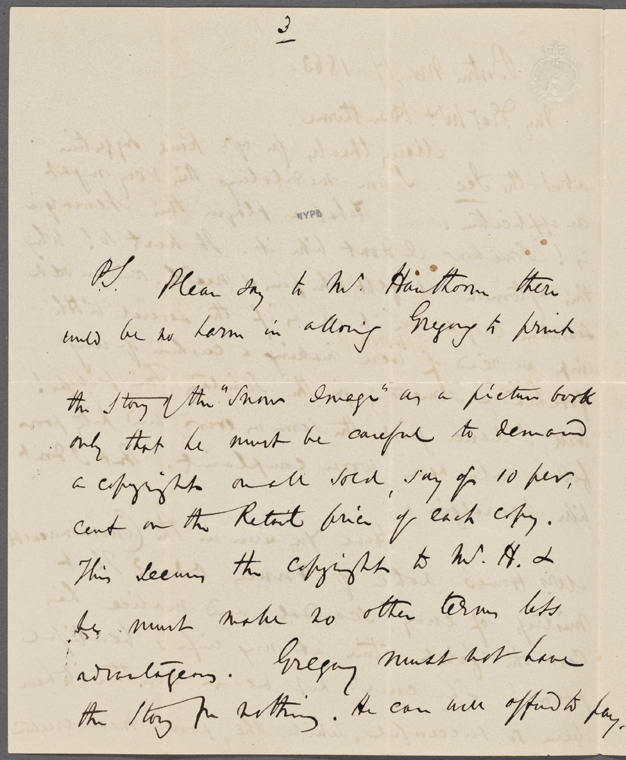 3
NYPL
P.S. Please say to Mr. Hawthorne there
would be no harm in allowing Gregory to print
the Story of the "Snow Image" as a picture book
only that he must be careful to demand
a copyright on all sold, say of 10 per.
cent on the Retail price of each copy.
This secures the copyright to Mr. H. &
he must make no other terms less
advantageous. Gregory must not have
the Story for nothing. He can well afford to pay.